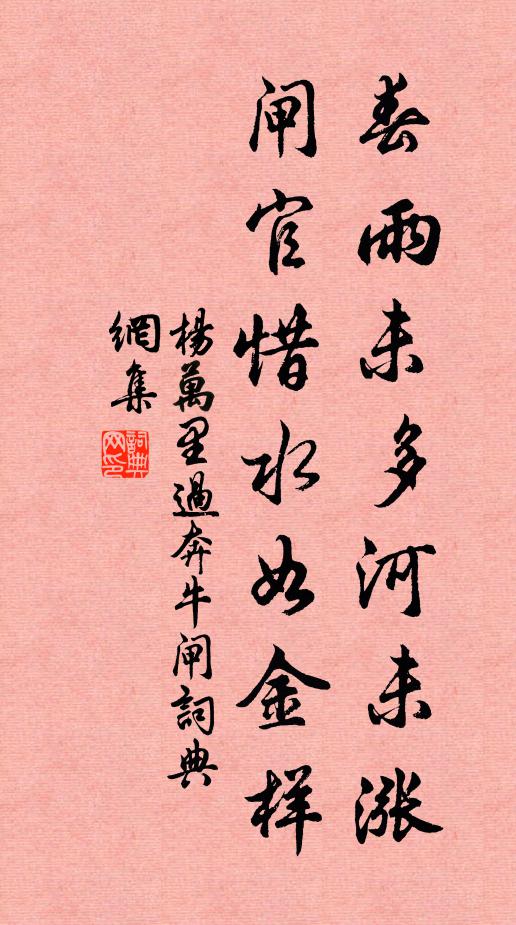 春雨未多河未漲
閘官惜水如金樣
楊萬里過奔牛閘詞典
網集
詞典
网印